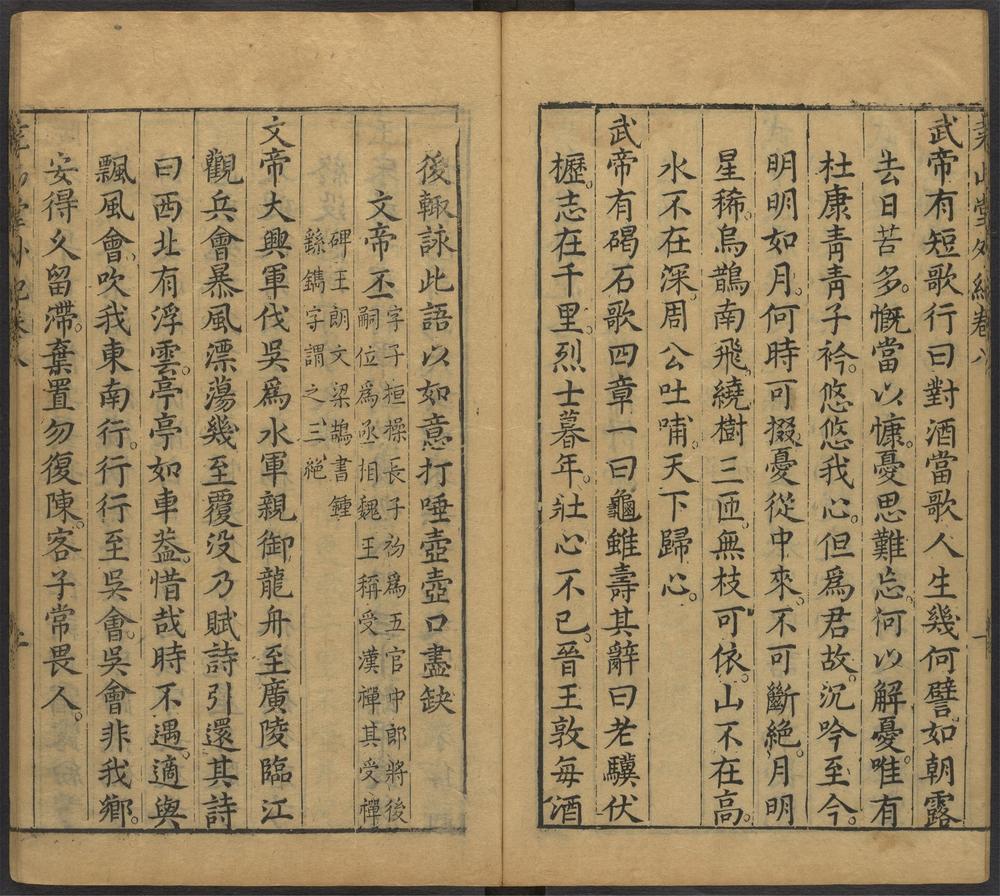 堯山堂外紀卷八
武帝有短歌行曰對酒當歌人生幾何譬如朝露
去日苦多。慨當以慷。憂思難忘。何以解憂。唯有
杜康青青子衿。悠悠我心。但爲君故。沉吟至今。
明明如月。何時可掇憂從中來。不可斷絶。月明
星稀。烏鵲南飛。繞樹三匝。無枝可依。山不在高。
水不在深。周公吐哺。天下歸心。
武帝有碣石歌四章一曰龜雖壽其辭曰老驥伏
櫪。志在千里。烈士暮年。壯心不已。晉王敦每酒
後輒詠此語以如意打唾壺壺口盡缺
文帝丕
字子桓操長子初爲五官中郎將後
嗣位爲丞相魏王稱受漢禪其受禪
碑王朗文梁鵠書鍾
繇鐫字謂之三絶
文帝大興軍伐吳爲水軍親御龍舟至廣陵臨江
觀兵會暴風漂蕩幾至覆没乃賦詩引還其詩
曰西北有浮雲。亭亭如車葢。惜哉時不遇。適與
飄風會。吹我東南行。行行至吳會。吳會非我鄉。
安得久留滯。棄置勿復陳。客子常畏人。